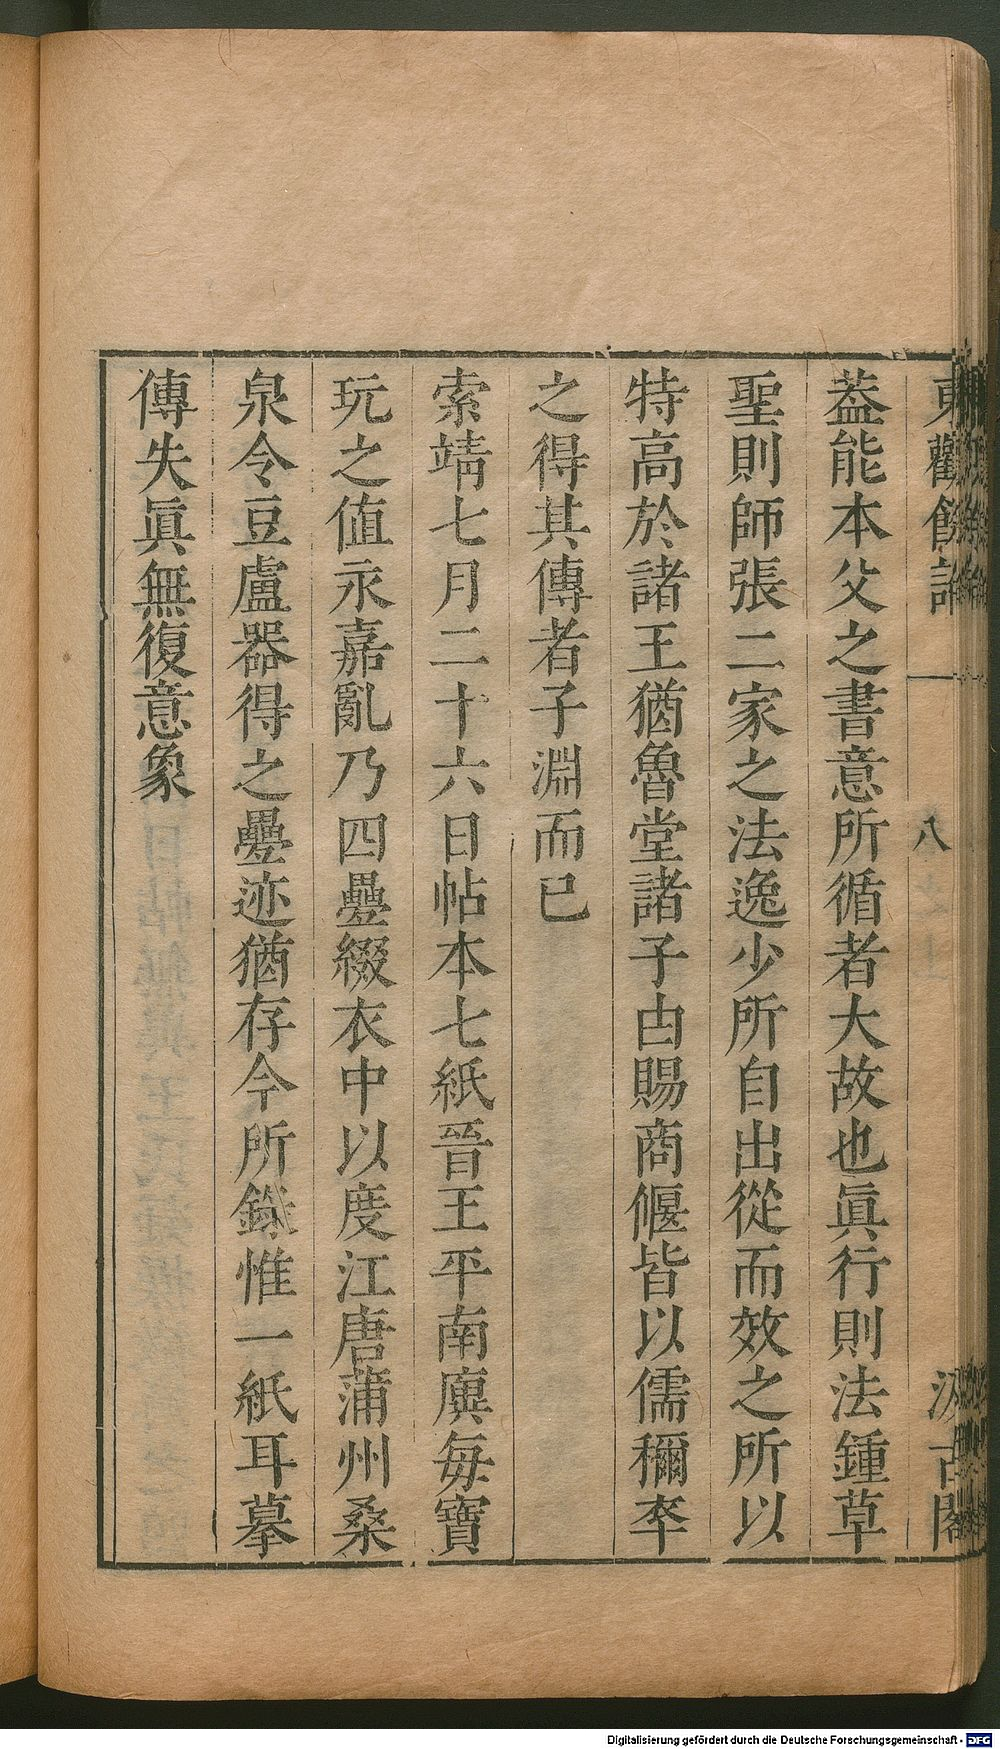 東觀餘論 一 八 汲古閣
葢能本父之書意所循者大故也眞行則法鍾草
聖則師張二家之法逸少所自出從而效之所以
特高於諸王猶魯堂諸子由賜商偃皆以儒稱卒
之得其傳者子淵而已
索靖七月二十六日帖本七紙晉王平南廙毎寶
玩之値永嘉亂乃四疊綴衣中以度江唐蒲州桑
泉令豆盧器得之疊迹猶存今所錄惟一紙耳摹
傳失眞無復意象
Digitalisierung gefördert durch die Deutsche Forschungsgemeinschaft - DFG